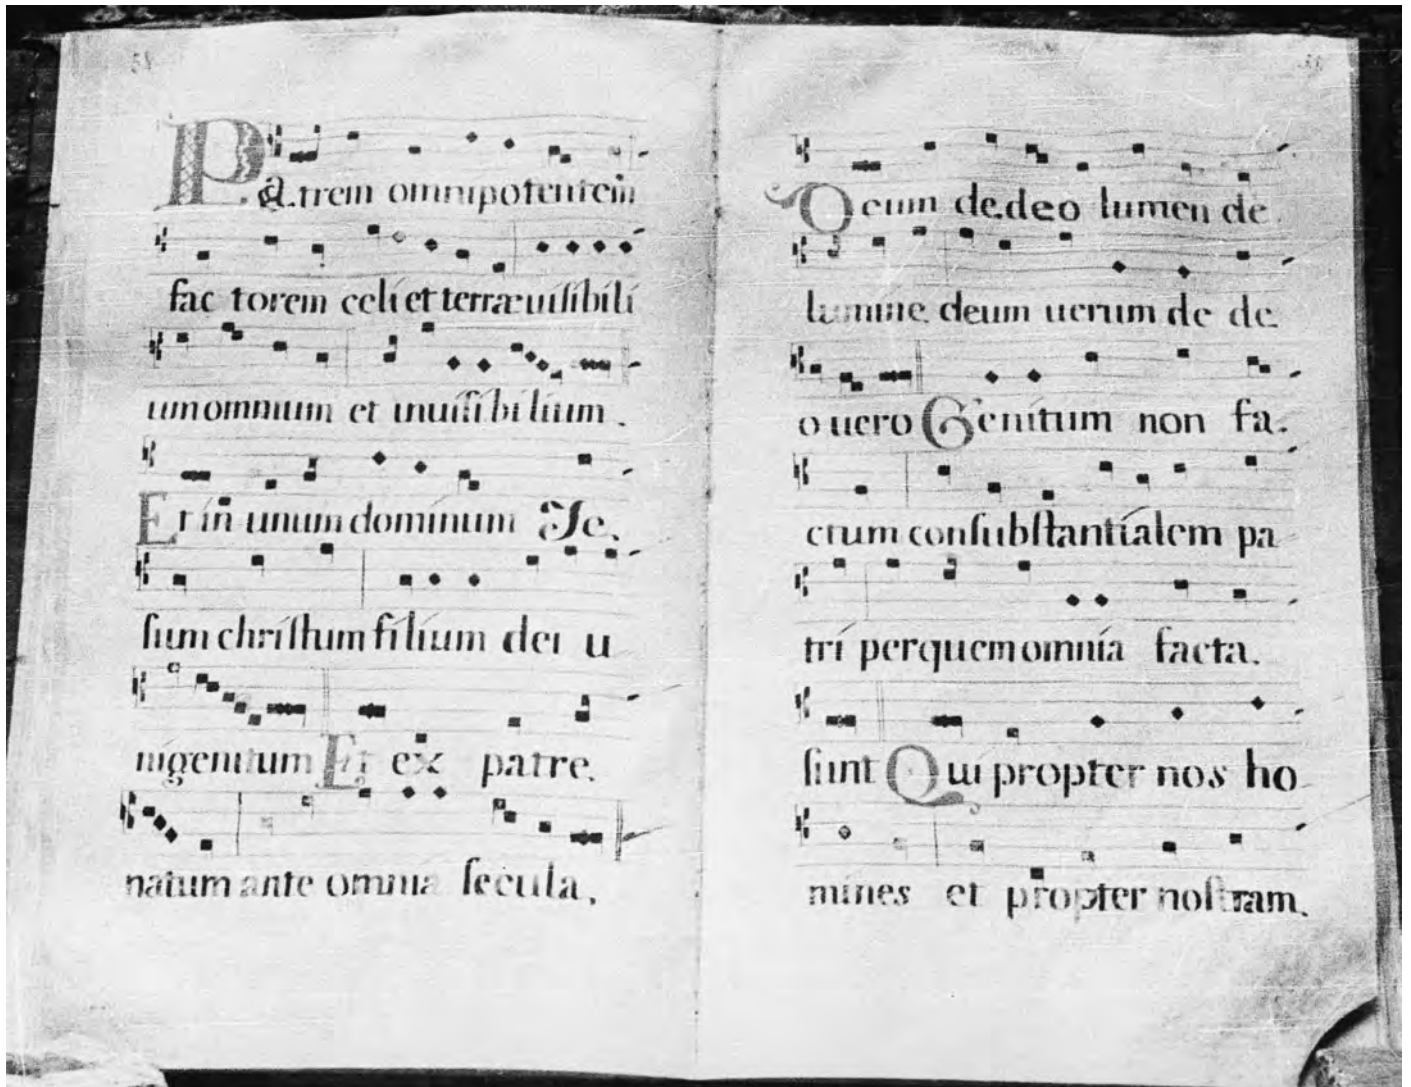 Patrem omnipotentem
fac torem celi et terræ uisibili
um omnium et inuisibilium.
Et in unum dominum Je.
sum christum filium dei u
nigenitum Et ex patre.
natum ante omnia secula.
Deum de.deo lumen de.
lumine. deum uerum de de.
o uero Genitum non fa.
ctum consubstantialem pa
tri per quem omnia facta.
sunt Qui propter nos ho
mines et propter nostram.